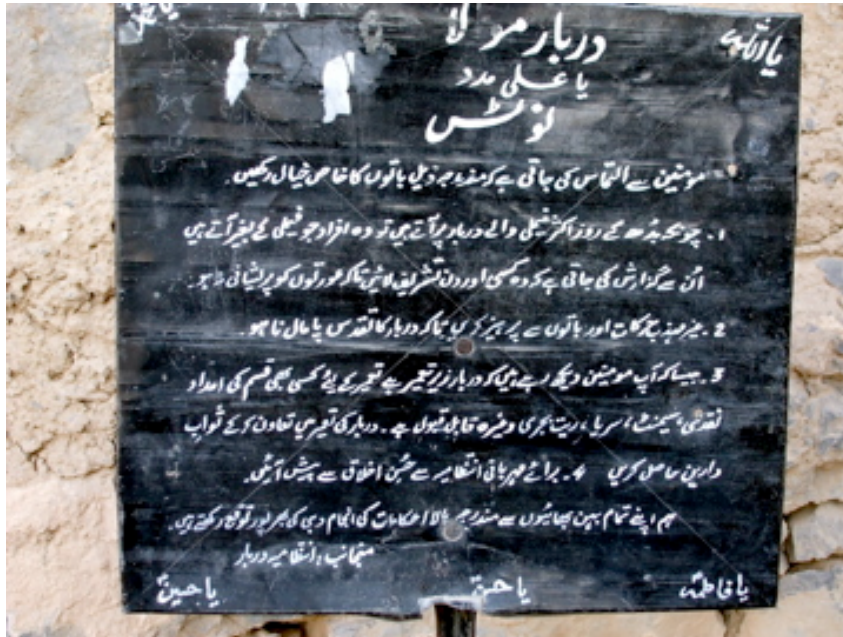 دربار مولا
یا علی مدد
نوٹس
مومنین سے التماس کی جاتی ہے کہ مندرجہ ذیل باتوں کا خاص خیال رکھیں۔
1۔ چونکہ بدھ کے روز اکثر فیملی والے دربار پر آتے ہیں تو وہ افراد جو فیملی کے بغیر آتے ہیں
اُن سے گذارش کی جاتی ہے کہ وہ کسی اور دن تشریف لائیں تاکہ عورتوں کو پریشانی نہ ہو۔
2۔ غیر مہذب حرکات اور باتوں سے پرہیز کریں تاکہ دربار کا تقدس پامال نا ہو۔
3۔ جیسا کہ آپ مومنین دیکھ رہے ہیں کہ دربار زیر تعمیر ہے تعمیر کے لئے کسی بھی قسم کی امداد
نقدی، سیمنٹ، سریا، ریت بجری وغیرہ قابل قبول ہے۔ دربار کی تعمیر میں تعاون کر کے ثواب
دارین حاصل کریں 4۔ برائے مہربانی انتظامیہ سے حُسن اخلاق سے پیش آئیں۔
ہم اپنے تمام بہن بھائیوں سے مندرجہ بالا احکامات کی انجام دہی کی بھر پور توقع رکھتے ہیں۔
منجانب: انتظامیہ دربار
یا فاطمہؑ یا حسنؑ یا حسینؑ